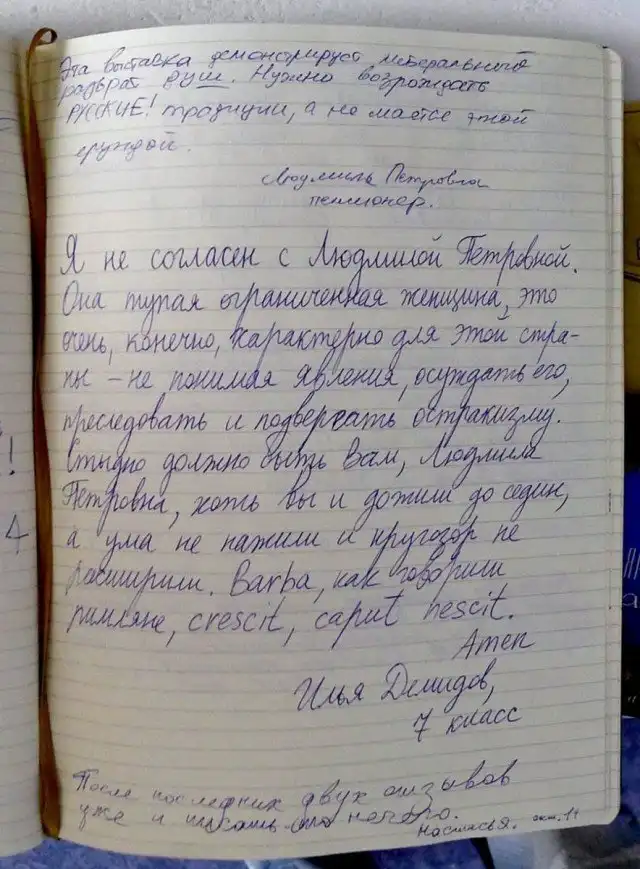 Эта выставка демонстрирует либерального
разврат душ. Нужно возрождать
РУССКИЕ! традиции, а не маяться этой
ерундой.
Людмила Петровна
пенсионер.
Я не согласен с Людмилой Петровной.
Она тупая ограниченная женщина, это
очень, конечно, характерно для этой стра-
ны – не понимая явления, осуждать его,
преследовать и подвергать остракизму.
Стыдно должно быть Вам, Людмила
Петровна, хоть вы и дожили до седин,
а ума не нажили и кругозор не
расширили. Barba, как говорили
римляне, crescit, caput nescit.
Amen
Илья Демидов,
7 класс
После последних двух отзывов
уже и писать-то нечего.
Настасья.
!
4